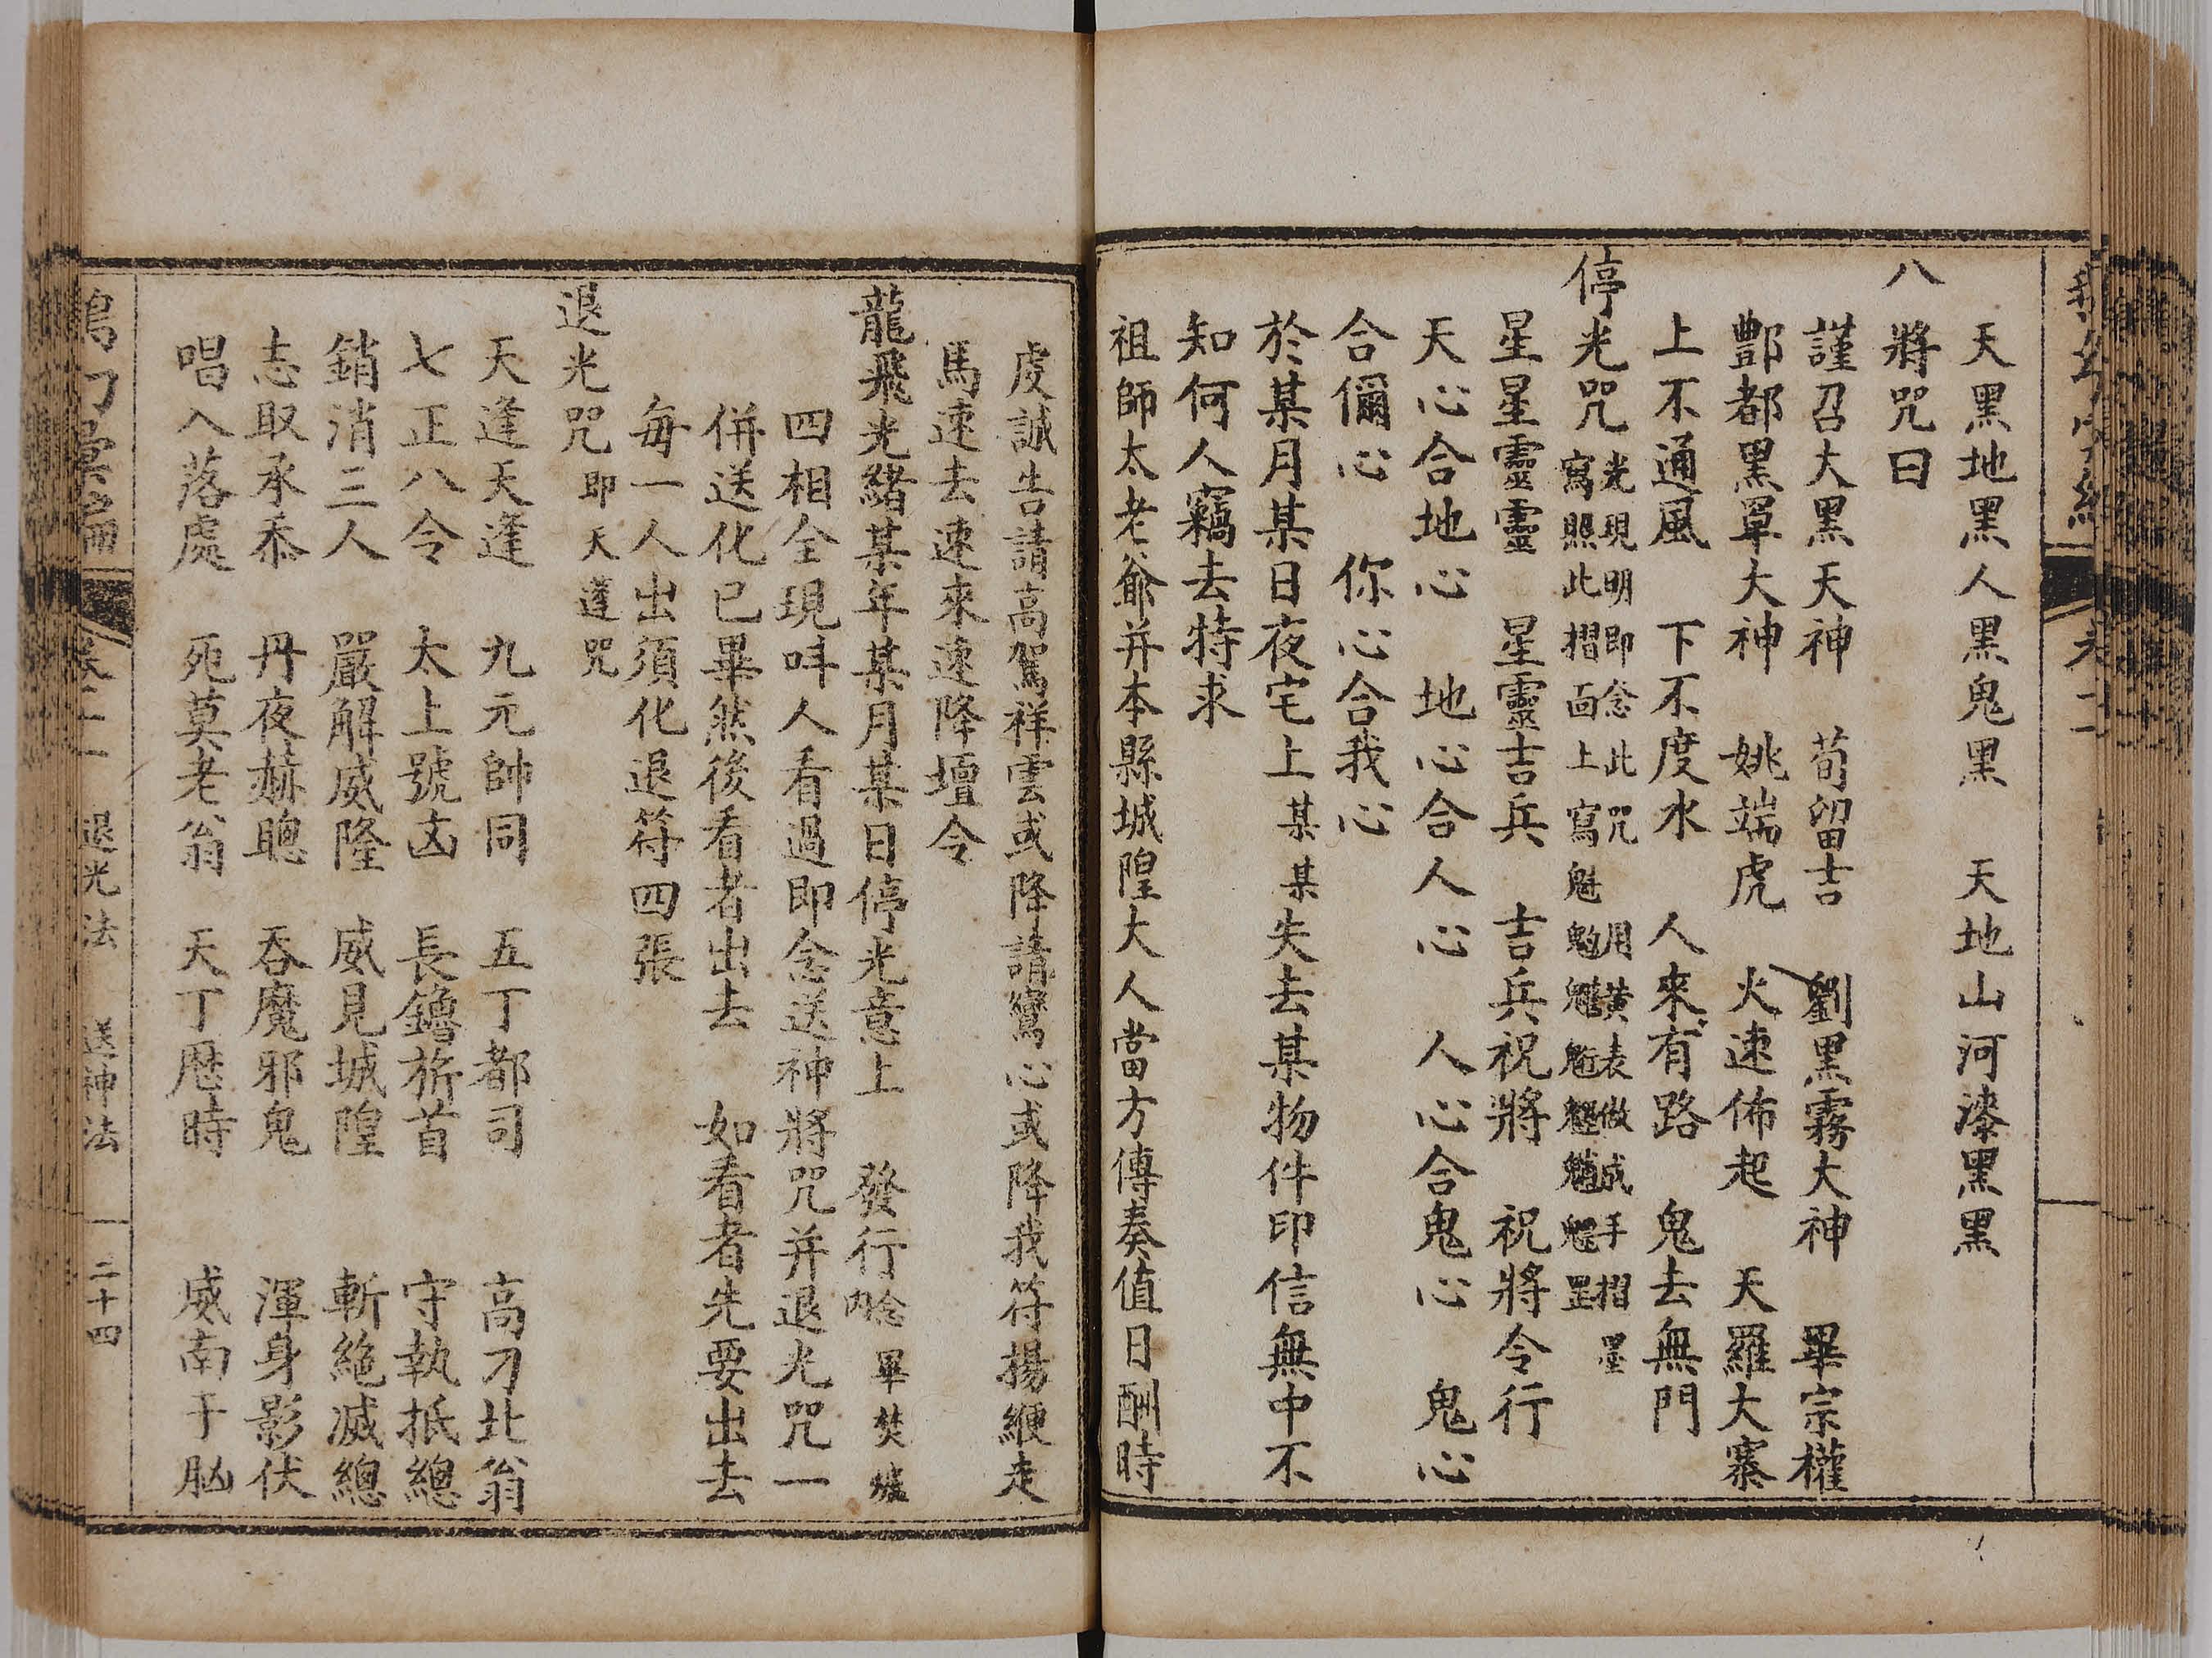 天黑地黑人黑鬼黑　天地山河漆黑黑
八將咒曰
謹召大黑天神　荀留吉　劉黑霧大神　畢宗權
酆都黑罩大神　姚端虎　火速佈起　天羅大寨
上不通風　下不度水　人來有路　鬼去無門
停光咒
光現明即念此咒　用黄表做成手摺
寫照此摺面上寫魁䰢
星星靈靈　星靈吉兵　吉兵祝將　祝將令行
天心合地心　地心合人心　人心合鬼心　鬼心
合儞心　你心合我心
於某月某日夜宅上某某失去某物件印信無中不
知何人竊去特求
祖師太老爺并本縣城隍大人當方傳奏值日時
虔誠告請高駕祥雲或降請鸞心或降我符揚緶走
馬速去速來速降壇令
龍飛光緒某年某月某日停光意上　發行唸畢焚
四相全現呌人看過即念送神將咒并退光咒一
併送化已畢然後看者出去　如看者先要出去
每一人出須化退符四張
退光咒即天蓬咒
天逢天逢　九元帥同　五丁都司　高刁北翁
七正八令　太上號凶　長鑥旂首　守執抵總
銷消三人　嚴解威隆　威見城隍　斬絶滅總
志取承忝　丹夜赫聰　吞魔邪鬼　渾身影伏
唱入落處　死莫老翁　天丁厯時　威南于
卷二　退光法　送神法　二十四